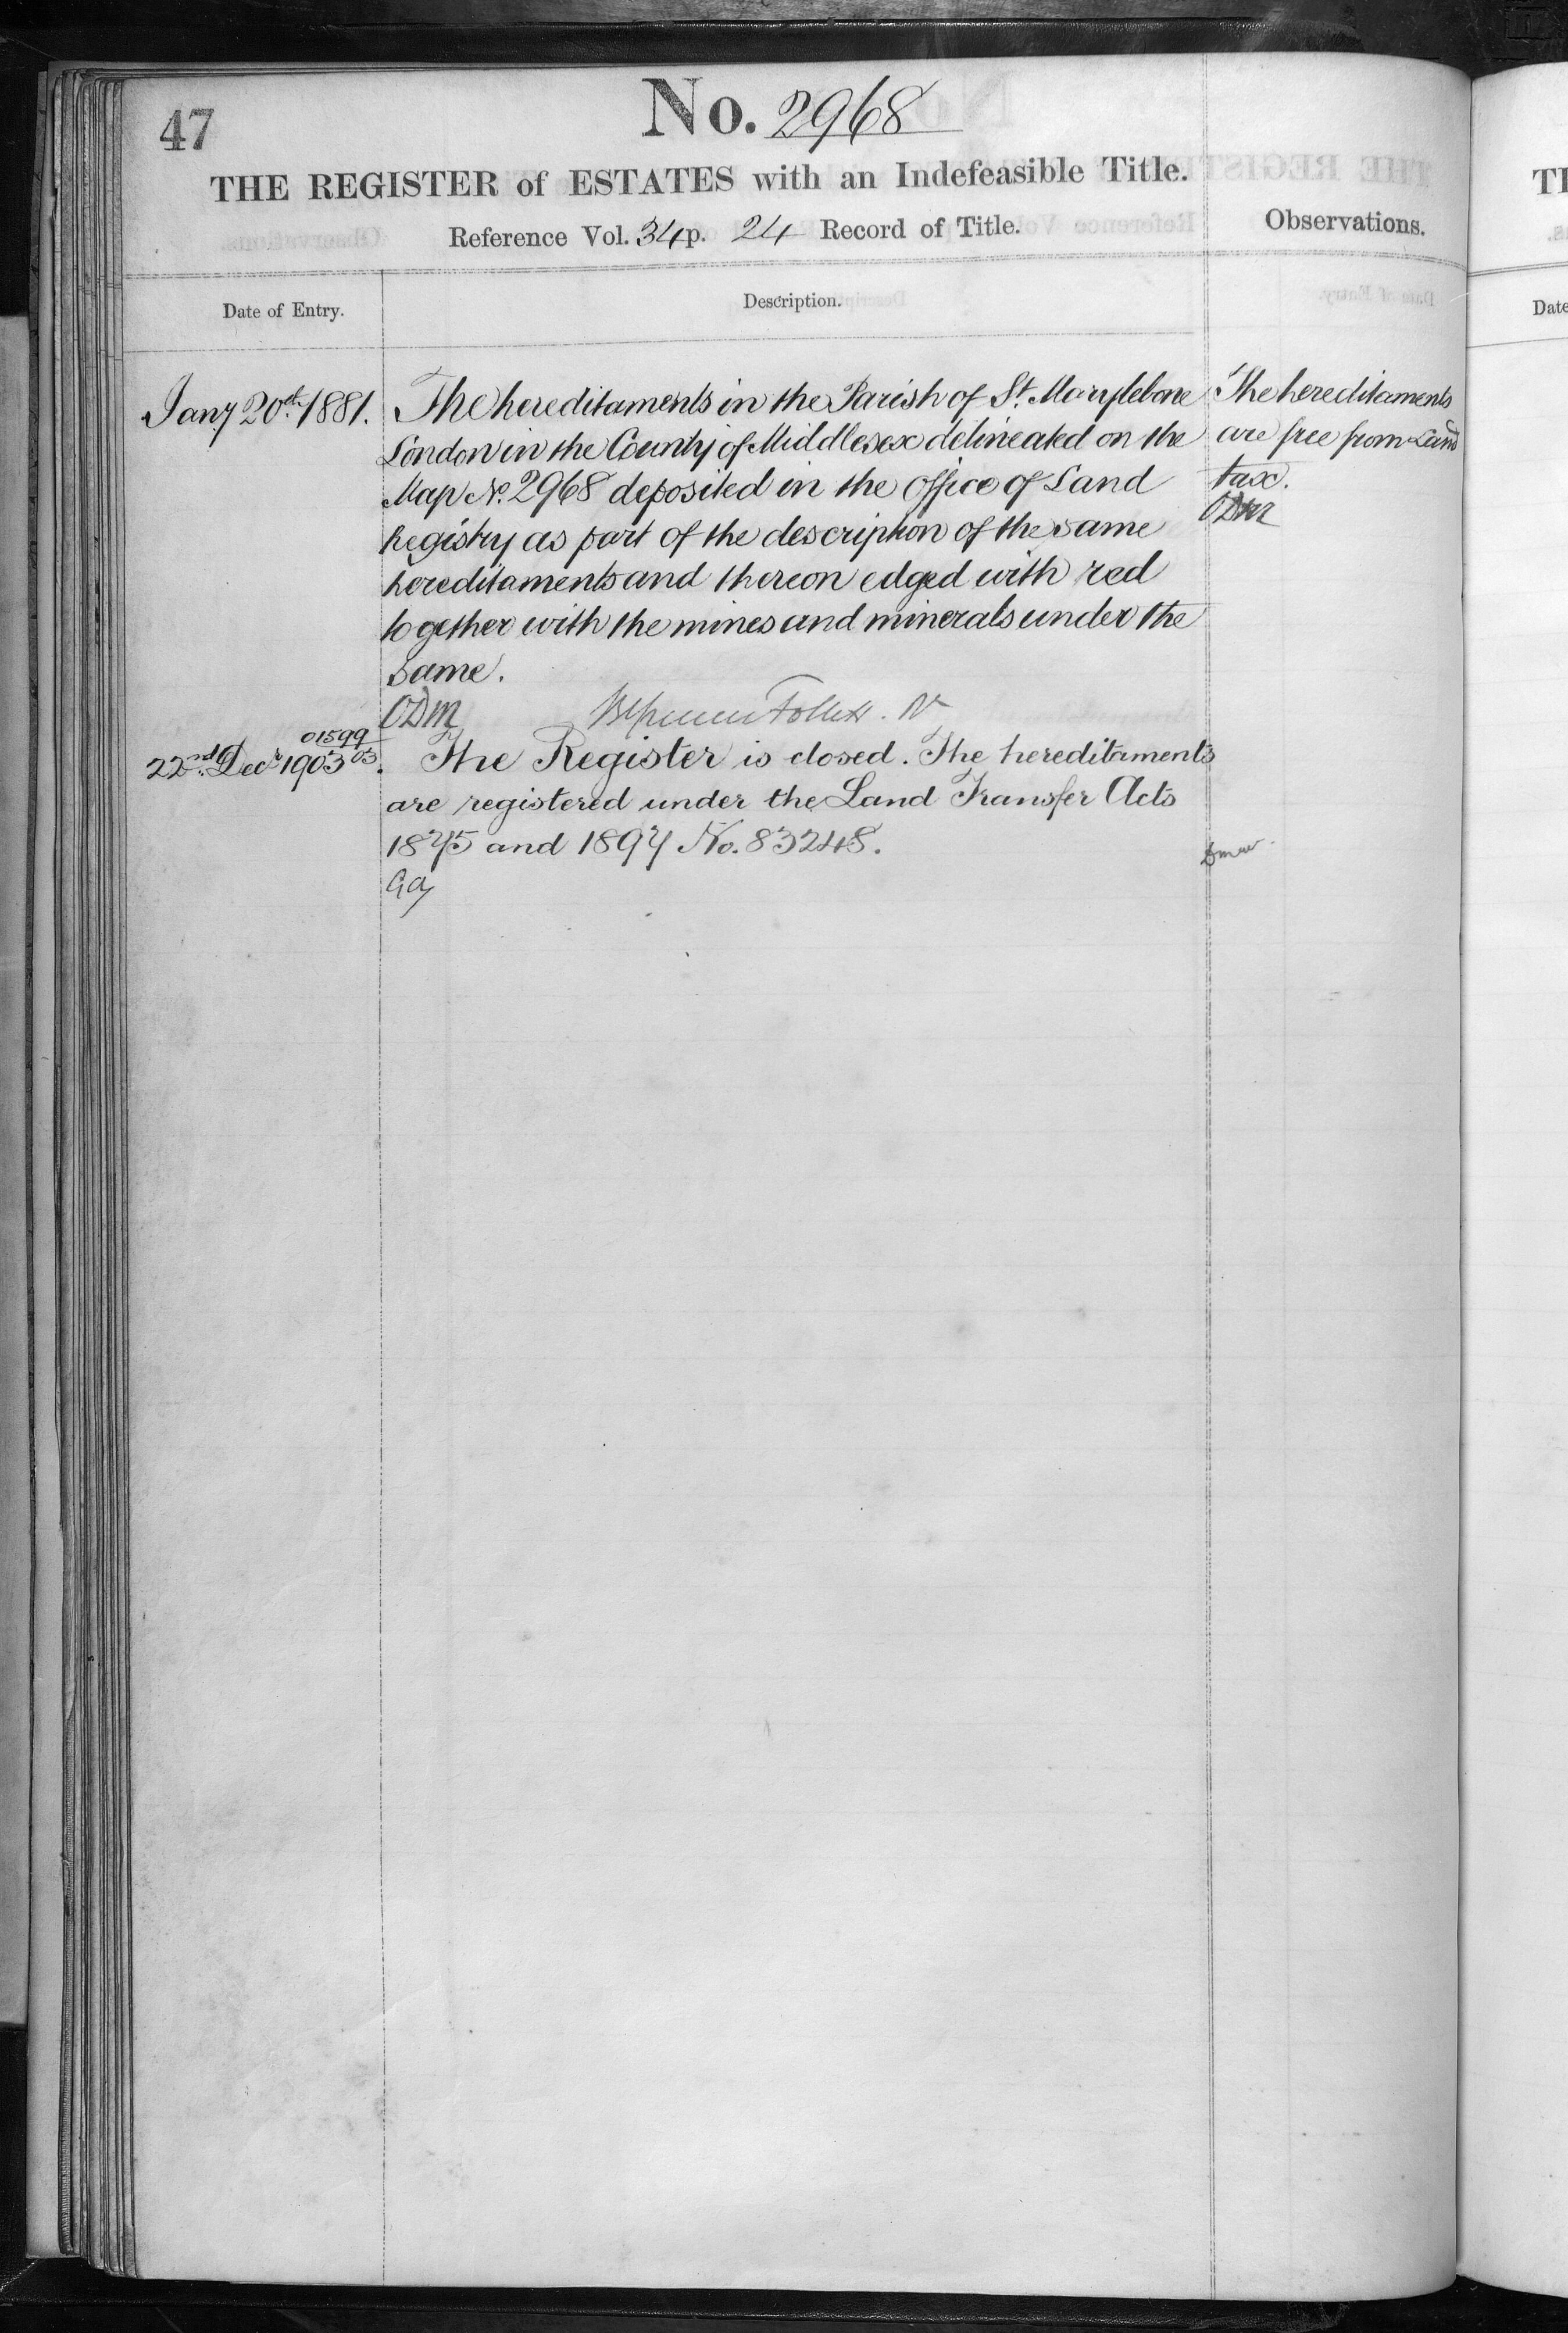 47
No. 2968
THE REGISTER of ESTATES with an Indefeasible Title.
Reference Vol. 34 p. 24 Record of Title.
Observations.
Date of Entry.
Description.
Jany 20th 1881.
The hereditaments in the Parish of St. Marylebone
London in the County of Middlesex delineated on the
Map No. 2968 deposited in the Office of Land
Registry as part of the description of the same
hereditaments and thereon edged with red
together with the mines and minerals under the
same.
ODM
Follett. Rr
The hereditaments
are free from Land
tax.
ODM
01599
03
22nd Decr 1903.
The Register is closed. The hereditaments
are registered under the Land Transfer Acts
1875 and 1897 No. 83248.
Date